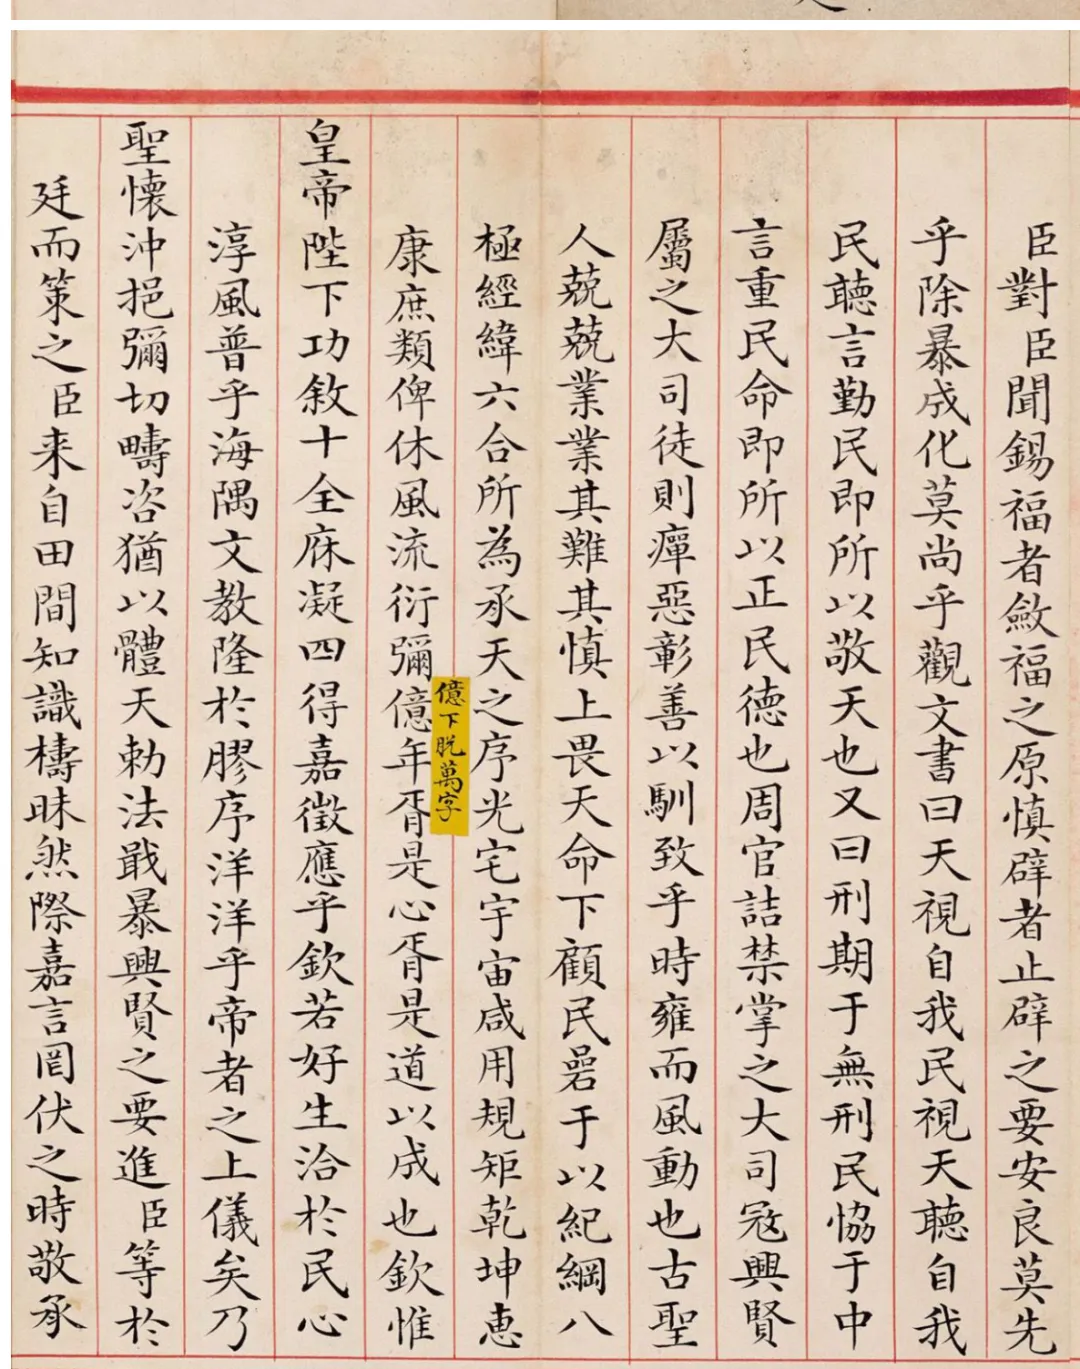 臣對臣聞錫福者斂福之原慎辟者止辟之要安良莫先
乎除暴成化莫尚乎觀文書曰天視自我民視天聽自我
民聽言勤民即所以敬天也又曰刑期于無刑民協于中
言重民命即所以正民德也周官詰禁掌之大司寇興賢
屬之大司徒則癉惡彰善以馴致乎時雍而風動也古聖
人兢兢業業其難其慎上畏天命下顧民碞于以紀綱八
極經緯六合所為承天之序光宅宇宙咸用規矩乾坤惠
億下脫萬字
康庶類俾休風流衍彌億年胥是心胥是道以成也欽惟
皇帝陛下功敘十全庥凝四得嘉徵應乎欽若好生洽於民心
淳風普乎海隅文教隆於膠序洋洋乎帝者之上儀矣乃
聖懷沖挹彌切疇咨猶以體天勅法戢暴興賢之要進臣等於
廷而策之臣来自田間知識檮昧然際嘉言罔伏之時敬承